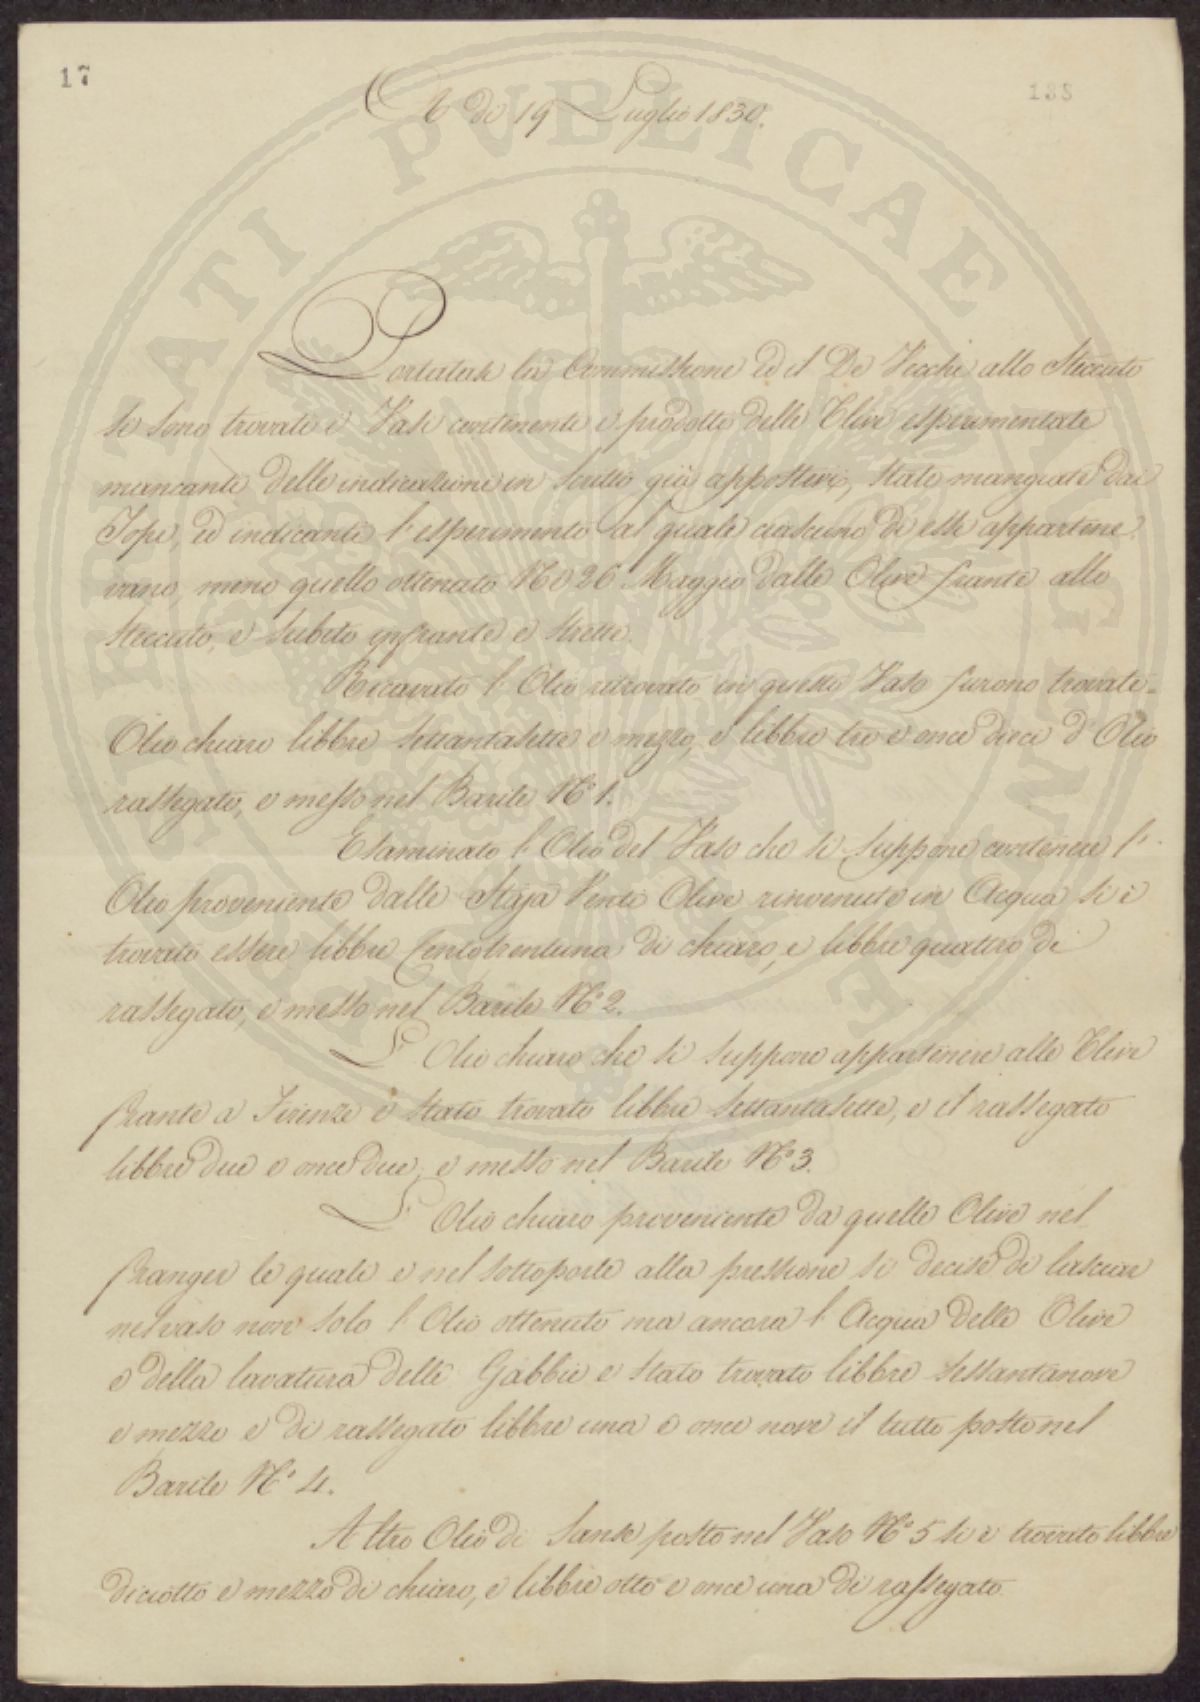 17
135
A dì 19 Luglio 1830.
Portatasi la Commissione ed il De Vecchi allo Steccuto
si sono trovati i Vasi contenenti i prodotti delle Olive esperimentate
mancanti delle indicazioni in scritto già appostevi, state mangiate dai
Topi, ed indicanti l'esperimento al quale ciascuno di essi appartene-
vano, meno quello ottenuto il dì 26 Maggio dalle Olive frante allo
Steccuto, e subito infrante e strette.
Ricavato l'Olio ritrovato in questo Vaso furono trovate
Olio chiaro libbre settantasette e mezzo, e libbre tre e once dieci d'Olio
rassegato, e messo nel Barile N.º 1.
Esaminato l'Olio del Vaso che si suppone contenere l'
Olio proveniente dalle Staja Venti Olive rinvenute in Acqua si è
trovato essere libbre Centotrentuna di chiaro, e libbre quattro di
rassegato, e messo nel Barile N.º 2.
L'Olio chiaro che si suppone appartenere alle Olive
frante a Firenze è stato trovato libbre settantasette, e il rassegato
libbre due e once due, e messo nel Barile N.º 3.
L'Olio chiaro proveniente da quelle Olive nel
franger le quali e nel sottoporle alla pressione si decise di lasciar
nel vaso non solo l'Olio ottenuto ma ancora l'Acqua delle Olive
e della lavatura delle Gabbie è stato trovato libbre sessantanove
e mezzo e di rassegato libbre una e once nove il tutto posto nel
Barile N.º 4.
Altro Olio di Sanse posto nel Vaso N.º 5 si è trovato libbre
diciotto e mezzo di chiaro, e libbre otto e once una di rassegato.
PUBLICAE